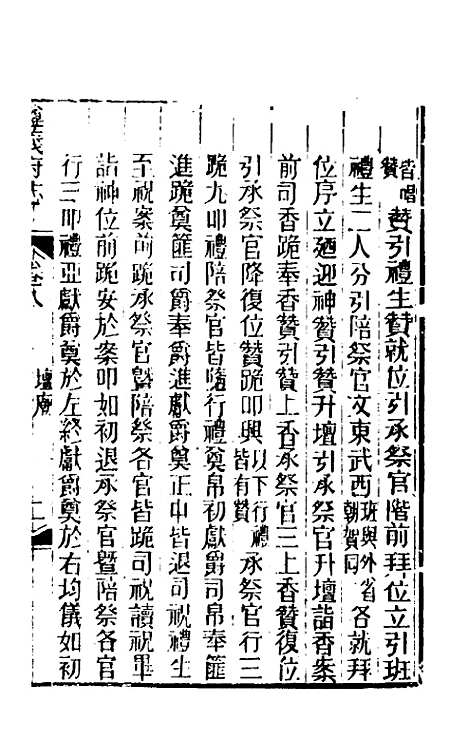 皆唱
贊贊引禮生贊就位引承祭官階前拜位立引班
禮生二人分引陪祭官文東武西班與外省朝賀同各就拜
位序立廻迎神贊引贊升壇引承祭官升壇詣香案
前司香跪奉香贊引贊上香承祭官三上香贊復位
引承祭官降復位贊跪叩興以下行禮皆有贊承祭官行三
跪九叩禮陪祭官皆隨行禮奠帛初獻爵司帛奉篚
進跪奠篚司爵奉爵進獻爵奠正中皆退司祝禮生
至祝案前跪承祭官曁陪祭各官皆跪司祝讀祝畢
詣神位前跪安於案叩如初退承祭官曁陪祭各官
行三叩禮亞獻爵奠於左終獻爵奠於右均儀如初
府志
壇廟